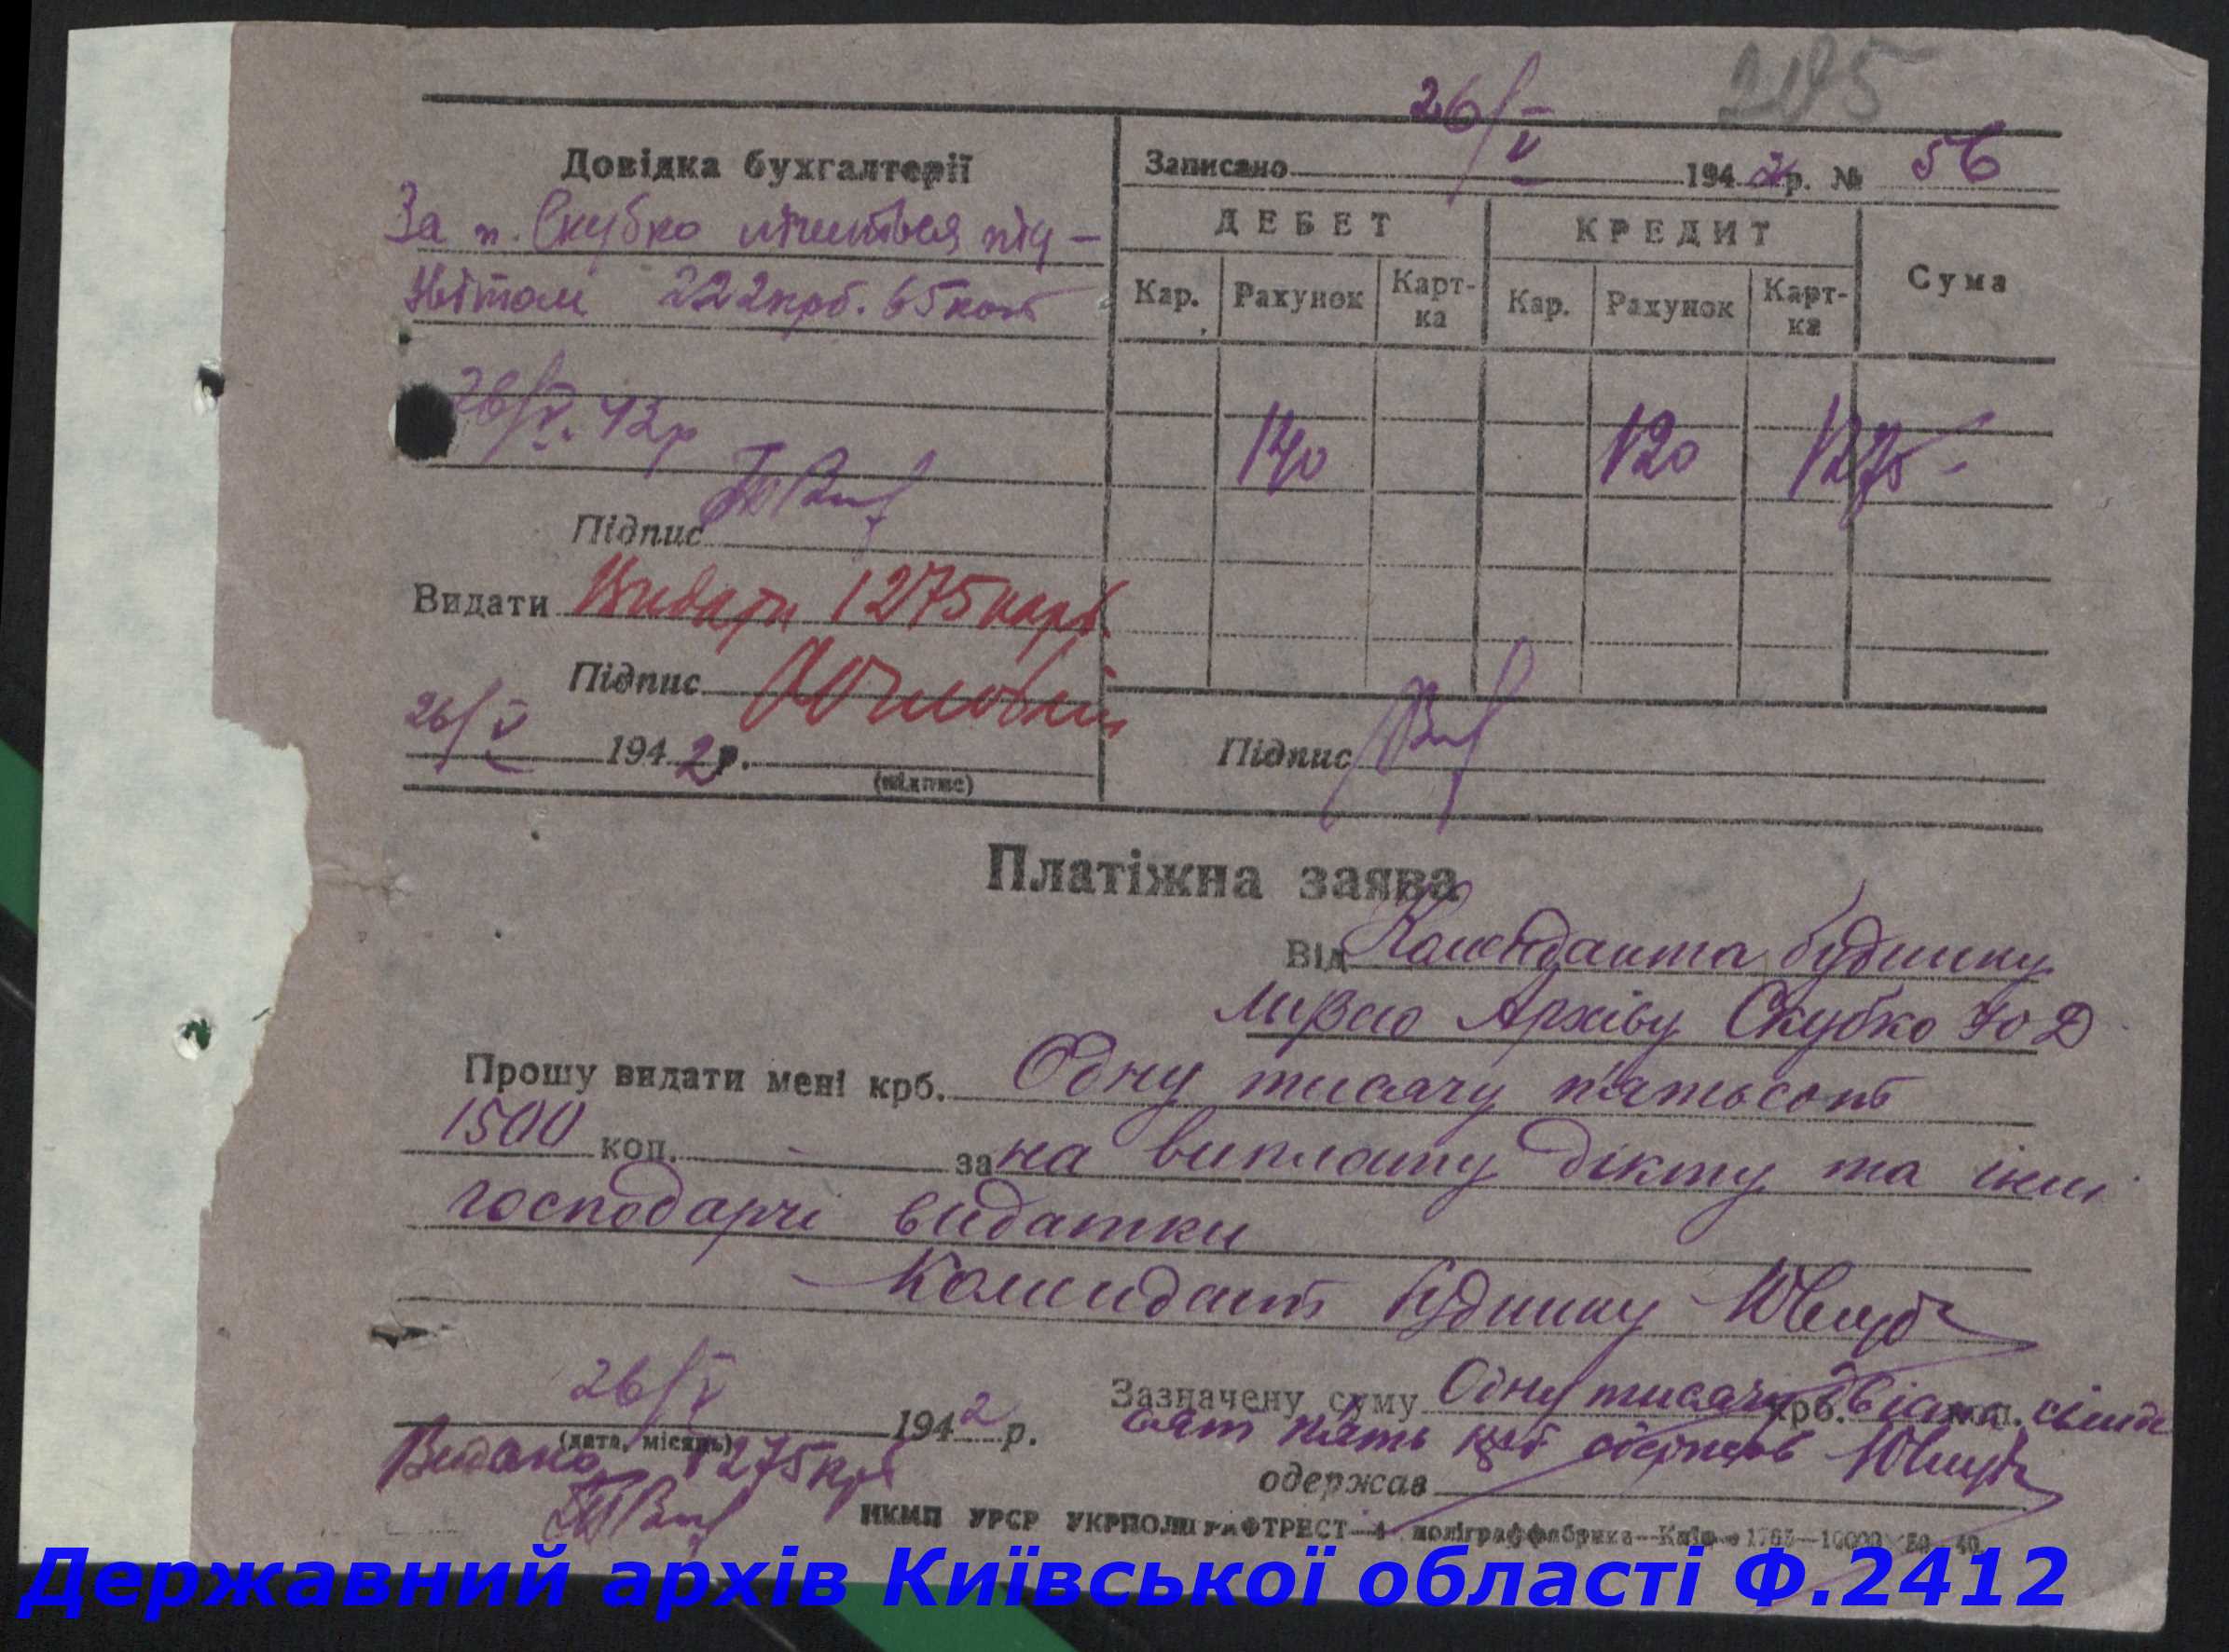 205
26/V
Довідка бухгалтерії
Записано 1942 р. № 56
За п. Скубко лічиться під-
звітом 222 крб. 65 коп
26/V. 42 р
Підпис
Видати Видати 1275 карб.
Підпис
26/V 1942 р.
(підпис)
ДЕБЕТ КРЕДИТ Сума
Кар. Рахунок Карт-ка Кар. Рахунок Карт-ка
140 120 1275-
Підпис
Платіжна заява
Від Коменданта будинку
Музею Архіву Скубко Ю Д
Прошу видати мені крб. Одну тисячу п'ятьсот
1500 коп. - за на виплату дікту та інші
господарчі видатки
Комендант будинку
26/V 1942 р.
(дата, місяць)
Зазначену суму Одну тисячу двіста сімде
крб. коп.
сят п'ять крб одержав
одержав
Видано 1275 крб
НКМП УРСР УКРПОЛІГРАФТРЕСТ—4 поліграффабрика—Київ—1765—10000 50 40
Державний архів Київської області Ф.2412